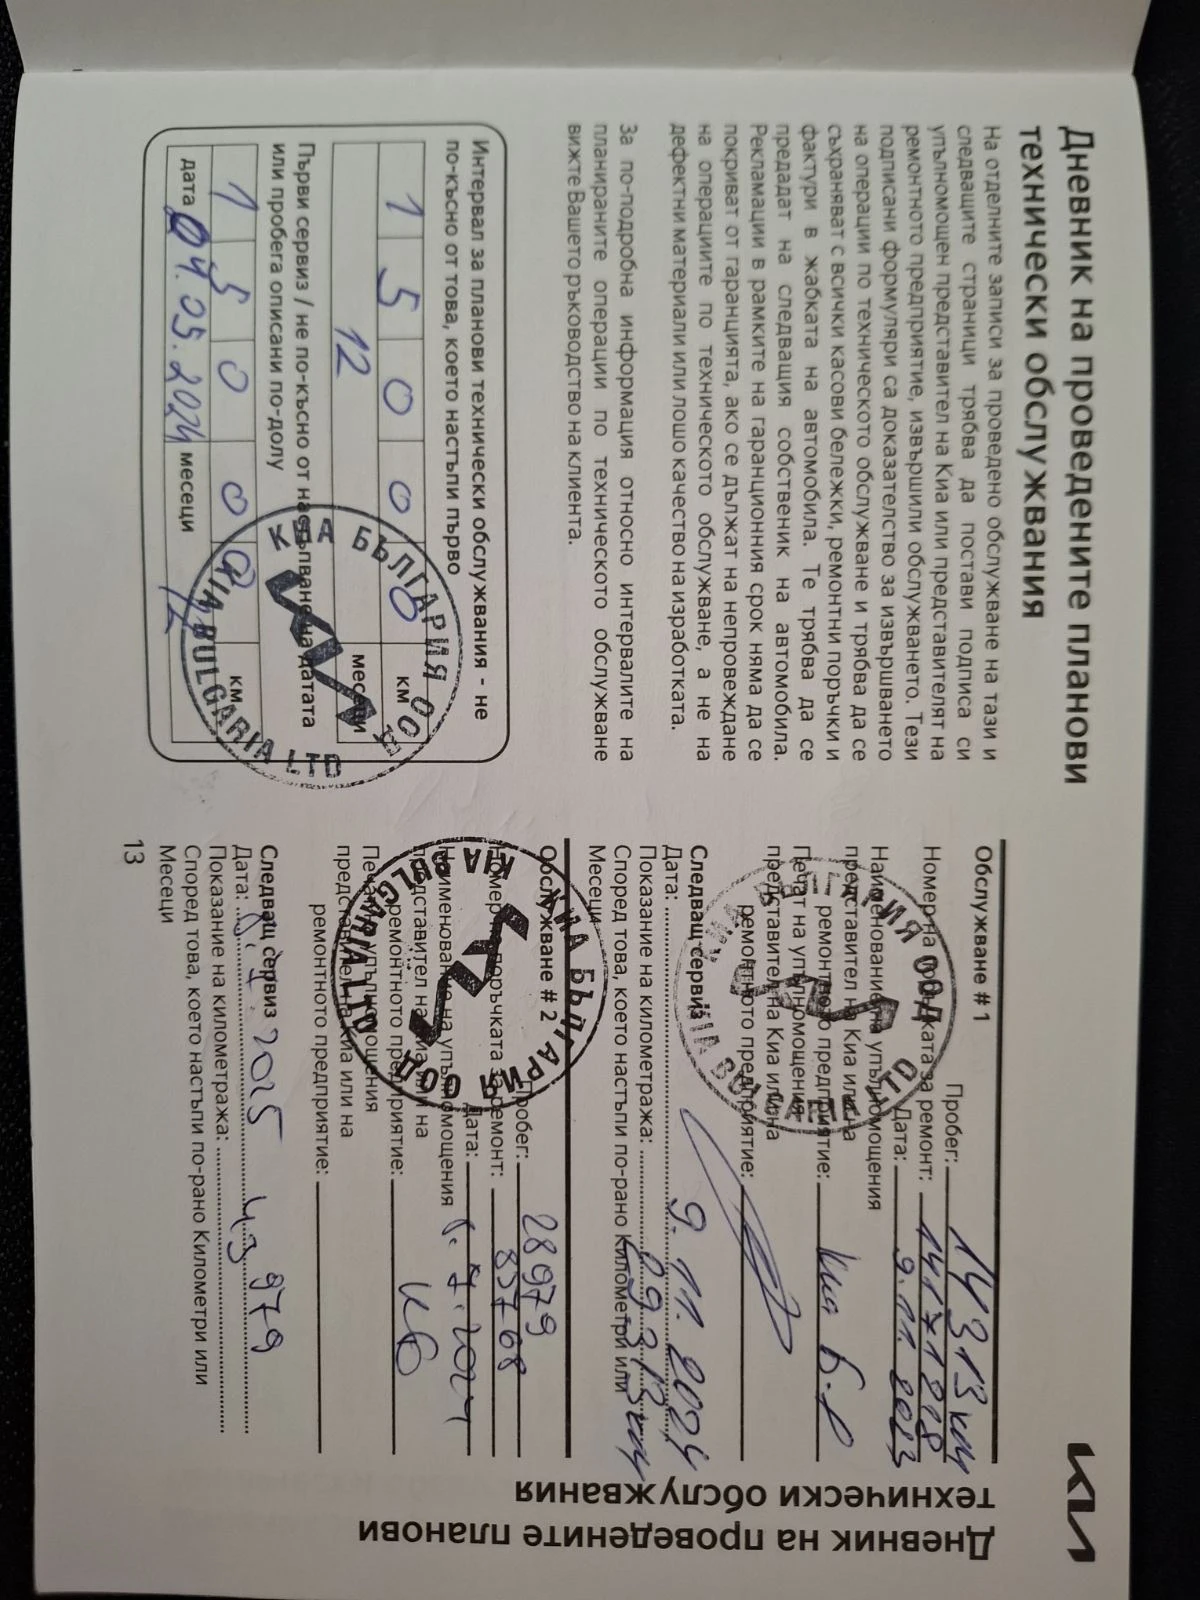 Дневник на проведените планови
технически обслужвания
На отделните записи за проведено обслужване на тази и
следващите страници трябва да постави подписа си
упълномощен представител на Киа или представителят на
ремонтното предприятие, извършили обслужването. Тези
подписани формуляри са доказателство за извършването
на операции по техническото обслужване и трябва да се
съхраняват с всички касови бележки, ремонтни поръчки и
фактури в жабката на автомобила. Те трябва да се
предадат на следващия собственик на автомобила.
Рекламации в рамките на гаранционния срок няма да се
покриват от гаранцията, ако се дължат на непровеждане
на операциите по техническото обслужване, а не на
дефектни материали или лошо качество на изработката.
За по-подробна информация относно интервалите на
планираните операции по техническото обслужване
вижте Вашето ръководство на клиента.
Интервал за планови технически обслужвания - не
по-късно от това, което настъпи първо
1 5 0 0 0 км
12 месеци
Първи сервиз / не по-късно от настъпване на датата
или пробега описани по-долу
1 5 0 0 0 км
дата 04.05.2024 месеци 12
КИА БЪЛГАРИЯ ООД
KIA BULGARIA LTD
KIA
Дневник на проведените планови
технически обслужвания
Обслужване # 1
Пробег: 14313 км
Номер на поръчката за ремонт: 14171228
Дата: 9.11.2023
Наименование на упълномощения
представител на Киа или на
ремонтното предприятие: Киа Б-я
Печат на упълномощения
представител на Киа или на
ремонтното предприятие:
Следващ сервиз
Дата: 9.11.2024
Показание на километража: 29313 км
Според това, което настъпи по-рано Километри или
Месеци
Обслужване # 2
Пробег: 28979
Номер на поръчката за ремонт: 85768
Дата: 8.7.2024
Наименование на упълномощения
представител на Киа или на
ремонтното предприятие: КБ
Печат на упълномощения
представител на Киа или на
ремонтното предприятие:
КИА БЪЛГАРИЯ ООД
KIA BULGARIA LTD
Следващ сервиз
Дата: 8.7.2025
Показание на километража: 43 979
Според това, което настъпи по-рано Километри или
Месеци
13